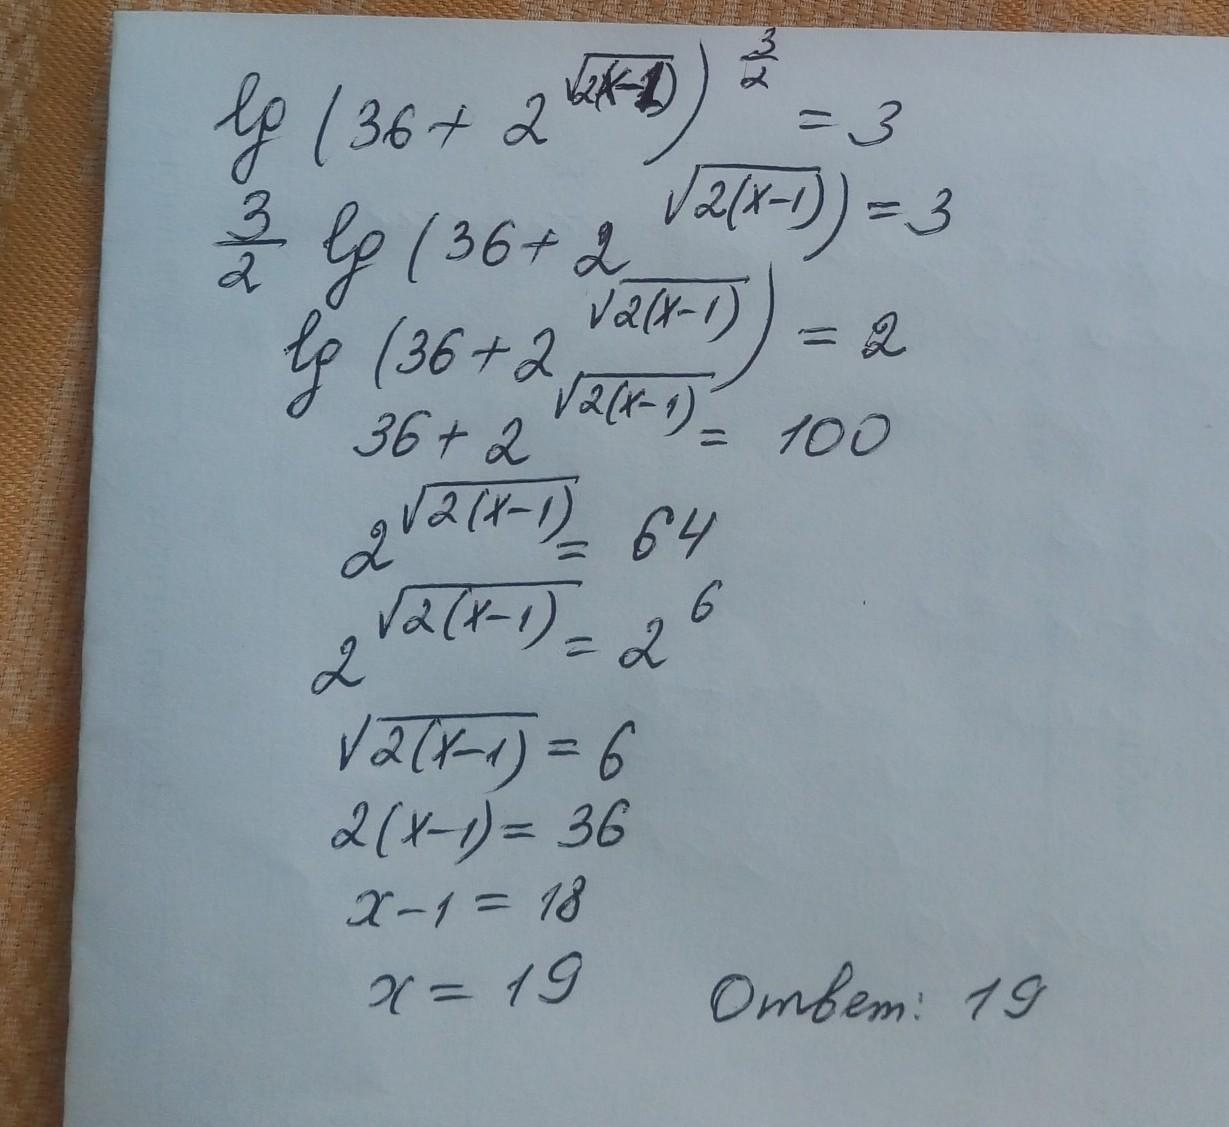 lg (36 + 2^√(2(x-1)))^(3/2) = 3
3/2 lg (36 + 2^√(2(x-1))) = 3
lg (36 + 2^√(2(x-1))) = 2
36 + 2^√(2(x-1)) = 100
2^√(2(x-1)) = 64
2^√(2(x-1)) = 2^6
√(2(x-1)) = 6
2(x-1) = 36
x-1 = 18
x = 19 Ответ: 19